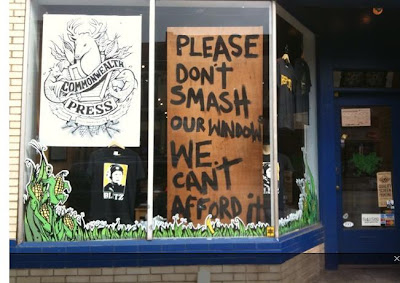 COMMONWEALTH
PRESS
BLTZ
PLEASE
DON'T
SMASH
OUR WINDOW
WE
CAN'T
AFFORD it